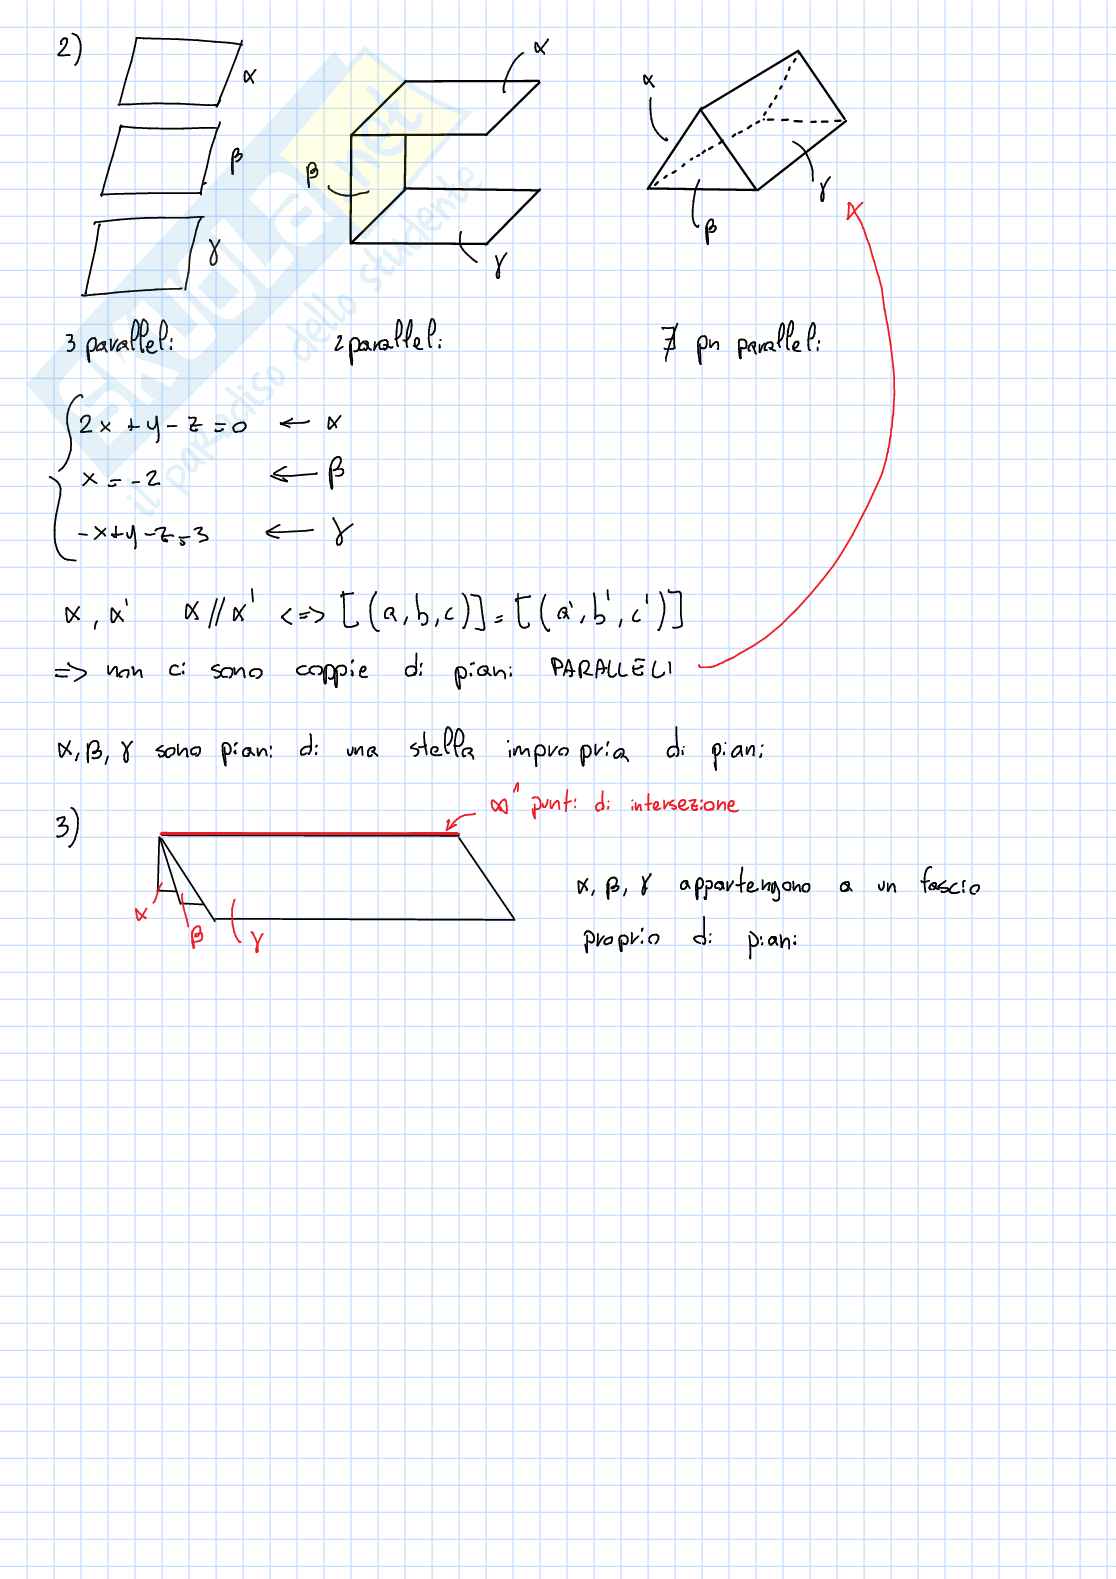 2)
α
β
γ
α
β
γ
α
β
γ
α
3 paralleli
2 paralleli
∄ pn paralleli
2x + y - z = 0 ← α
x = -2 ← β
-x+y-z=3 ← γ
α, α' α//α' <=> [(a,b,c)] = [(a',b',c')]
=> non ci sono coppie di piani PARALLELI
α, β, γ sono piani di una stella impropria di piani
3)
∞¹ punti di intersezione
α
β
γ
α, β, γ appartengono a un fascio
proprio di piani
SKUOLA.net
il paradiso dello studente